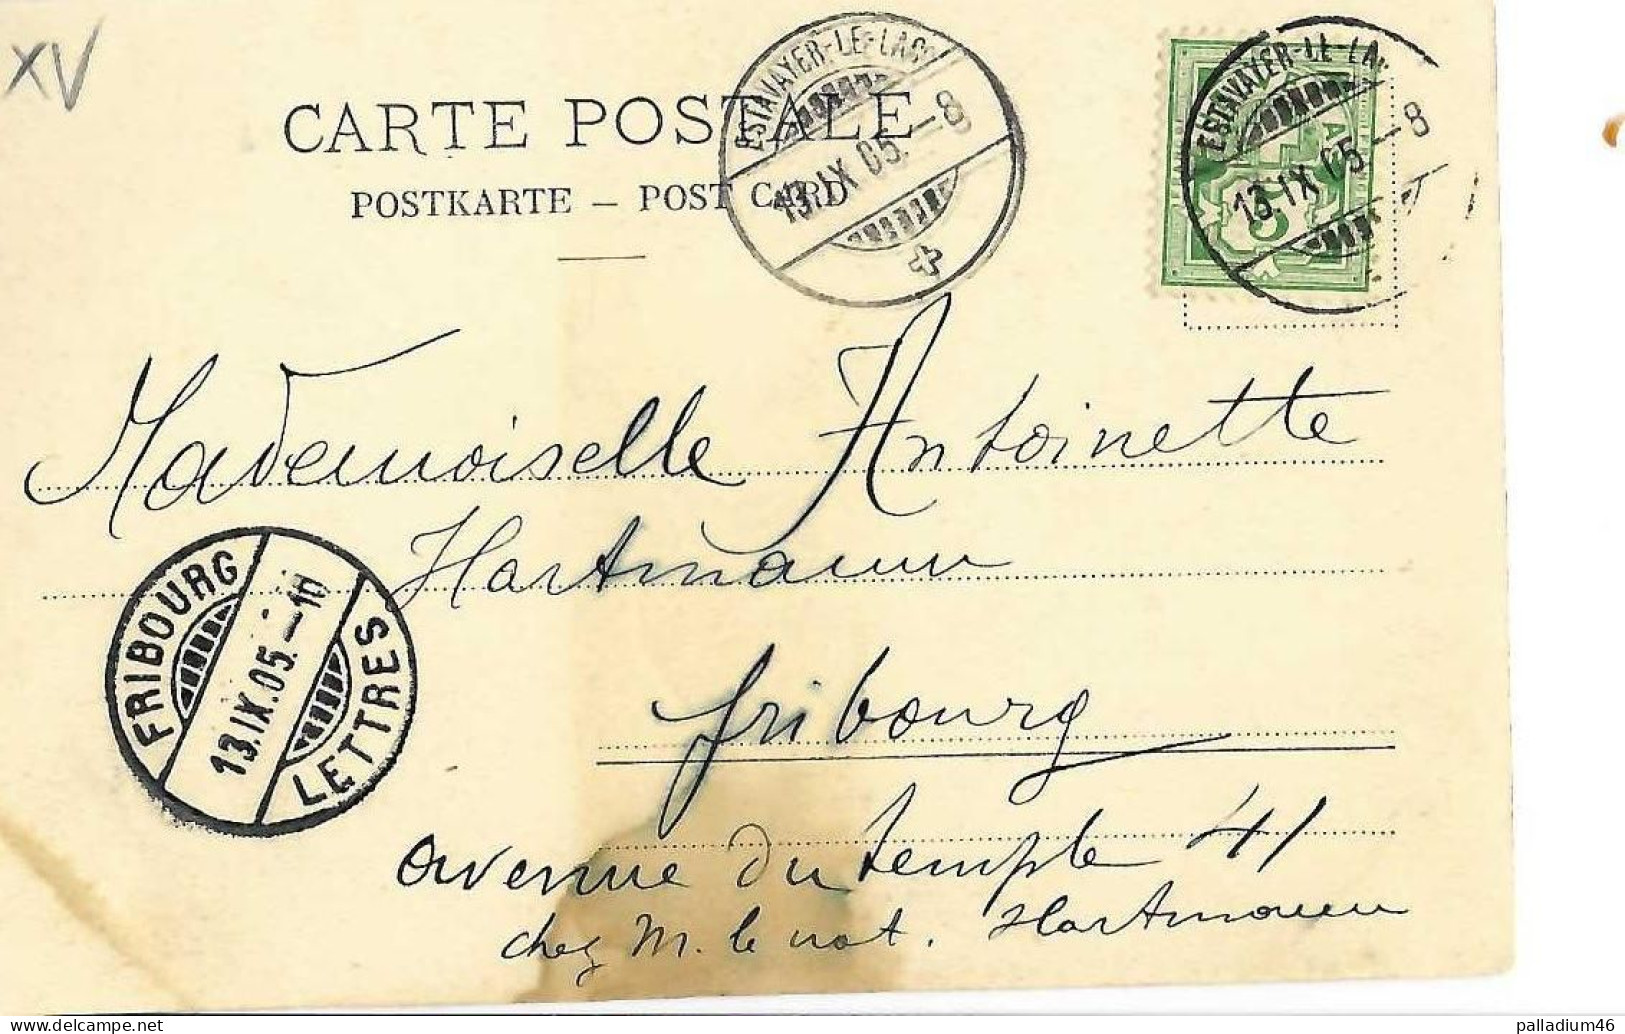 XV
CARTE POSTALE
POSTKARTE – POST CARD
ESTAVAYER-LE-LAC
13.IX.05.–8
ESTAVAYER-LE-LAC
13.IX.05–8
5
Mademoiselle Antoinette
Hartmann
FRIBOURG
13.IX.05.–10
LETTRES
fribourg
avenue du temple 41
chez M. le not. Hartmann
delcampe.net
palladium46